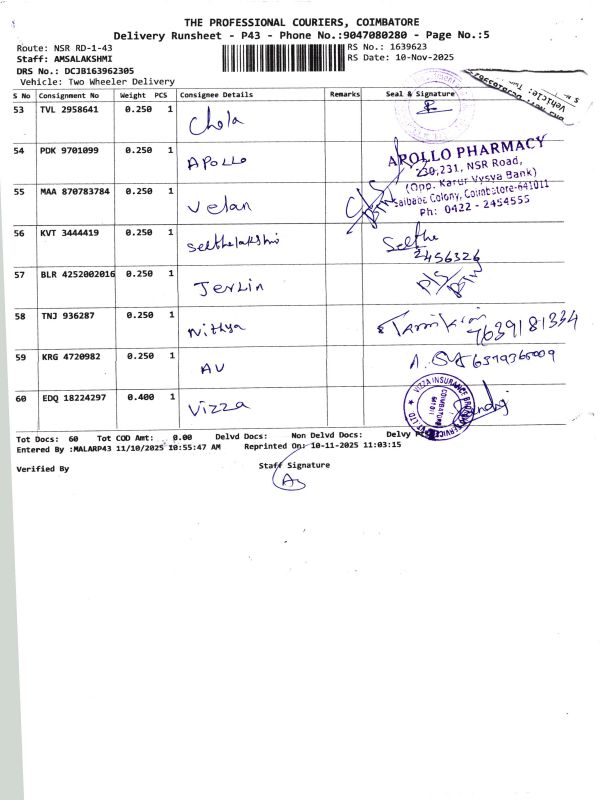 THE PROFESSIONAL COURIERS, COIMBATORE
Delivery Runsheet - P43 - Phone No.:9047080280 - Page No.:5
Route: NSR RD-1-43 RS No.: 1639623
Staff: AMSALAKSHMI RS Date: 10-Nov-2025
DRS No.: DCJB163962305
Vehicle: Two Wheeler Delivery
S No Consignment No Weight PCS Consignee Details Remarks Seal & Signature
53 TVL 2958641 0.250 1 Chola
54 PDK 9701099 0.250 1 APOLLO
APOLLO PHARMACY
230,231, NSR Road,
(Opp. Karur Vysya Bank)
Saibaba Colony, Coimbatore-641011
Ph: 0422 - 2454555
55 MAA 870783784 0.250 1 Velan
56 KVT 3444419 0.250 1 Seethelakshmi Seethe
2456326
57 BLR 4252002016 0.250 1 Jerlin
58 TNJ 936287 0.250 1 Nithya 7639181334
59 KRG 4720982 0.250 1 AU
60 EDQ 18224297 0.400 1 Vizza
VIZZA INSURANCE BROKING SERVICES PVT LTD
COIMBATORE
Tot Docs: 60 Tot COD Amt: 0.00 Delvd Docs: Non Delvd Docs: Delvy
Entered By :MALARP43 11/10/2025 10:55:47 AM Reprinted On: 10-11-2025 11:03:15
Verified By Staff Signature